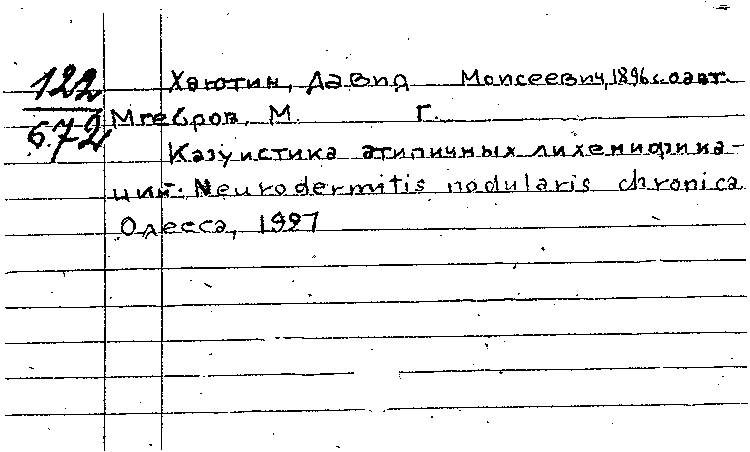 122
6.72
Хаютин, Давид Моисеевич, 1896 соавт.
Мгебров, М. Г.
Казуистика атипичных лихенифика-
ций. Neurodermitis nodularis chronica
Одесса, 1927